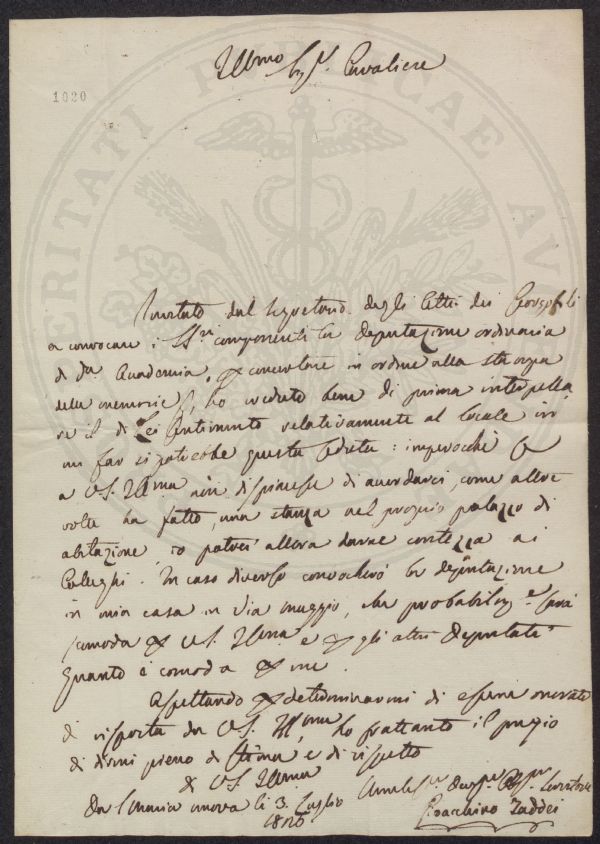 Illmo Sigr. Cavaliere
1020
VERITATI PUBLICAE
Invitato dal Segretario degli Atti dei Georgofili
a convocare i SSri componenti la deputazione ordinaria
di da. Accademia, per concertare in ordine alla stampa
delle memorie, ho creduto bene di prima interpella
re il di Lei sentimento relativamente al locale in
cui far si potrebbe questa seduta: imperocchè se
a V.S. Illma non dispiacesse di accordarci, come altre
volte ha fatto, una stanza nel proprio palazzo di
abitazione, io potrei allora darne contezza ai
Colleghi. In caso diverso convocherò la deputazione
in mia casa in via maggio, che probabilmte sarà
comoda per V.S. Illma e per gli altri Deputati
quanto è comoda per me.
Aspettando per determinarmi di essere onorato
di risposta da V.S. Illma, ho frattanto il pregio
di dirmi pieno di stima e di rispetto
di V.S. Illma
Da S. Maria nuova li 3. Luglio
Servitore
Gioacchino Taddei